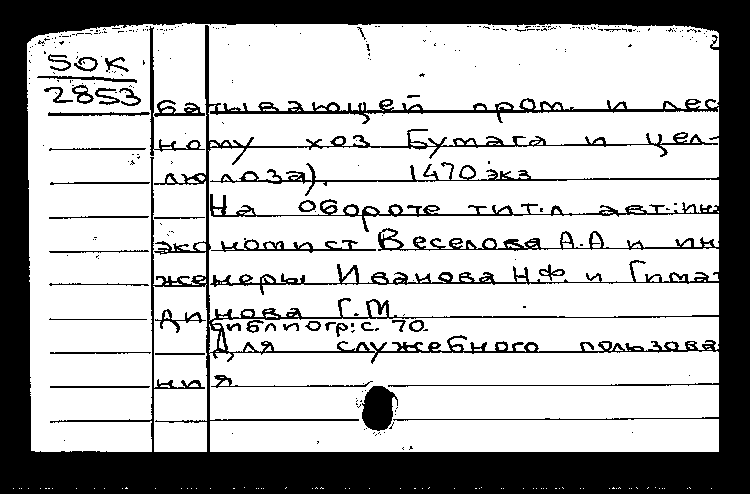 50К
2853
батывающей пром. и лес
ному хоз Бумага и цел-
люлоза). 1470 экз
На обороте тит.л. авт.: ин
экономист Веселова А.А и ин
женеры Иванова Н.Ф. и Гимат
динова Г.М.
Библиогр: с. 70.
Для служебного пользова
ния